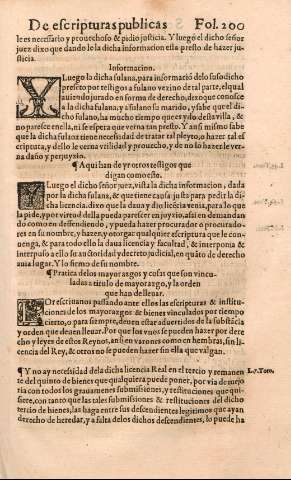 De escripturas publicas Fol. 200
le es necessario y prouechoso & pidio justicia. Y luego el dicho señor
juez dixo que dando le la dicha informacion esta presto de hazer ju
sticia.
Informacion.
Y Luego la dicha fulana, para informació delo susodicho
presēto por testigos a fulano vezino de tal parte, el qual
auiendo jurado en forma de derecho, dixo que conosce
a la dicha fulana, y a fulano su marido, y sabe que el di-
cho fulano, ha mucho tiempo que es ydo desta villa, &
no paresce en ella, ni se espera que verna tan presto. Y ansi mismo sabe
que la dicha fulana tiene necessidad de tratar tal pleyto, o hazer tal es
criptura, y dello le verna vtilidad y prouecho, y de no lo hazer le ver-
na daño y perjuyzio.
¶ Aqui han de yr otros testigos que
digan como este.
Y Luego el dicho señor juez, vista la dicha informacion, dada
por la dicha fulana, & que tiene causa justa para pedir la di
cha licencia. dixo que la daua y dio licēcia venia, para lo que
la pide, y por virtud della pueda parescer en juyzio, asi en demandan
do como en defendiendo, y pueda hazer procurador o procurado-
res en su nombre, y hazer, y otorgar qualquier escriptura que le con-
uenga, & para todo ello la daua licencia y facultad, & interponia &
interpuso a ello su autoridad y decreto judicial, en quāto de derecho
auia lugar. Y lo firmo de su nombre.
¶ Pratica delos mayorazgos y cosas que son vincu-
ladas a titulo de mayorazgo, y la orden
que han de lleuar.
POr escriuanos passando ante ellos las escripturas & institu-
ciones de los mayorazgos & bienes vinculados por tiempo
cierto, o para siempre, deuen estar aduertidos de la substācia
y orden que deuen lleuar. Por que los vnos se pueden hazer por dere
cho y leyes de estos Reynos, an si en varones como en hembras, sin li
cencia del Rey, & otros no se pueden hazer sin ella que valgan.
¶ Y no ay necessidad dela dicha licencia Real en el tercio y remanen L.27.Toro.
te del quinto de bienes que qualquiera puede poner, por via de mejo
ria con todos los grauamenes submissiones, y restituciones que qui-
siere, con tanto que las tales submissiones & restituciones del dicho
tercio de bienes, las haga entre sus descendientes legitimos que ayan
derecho de heredar, y a falta delos dichos descendientes, lo puede ha